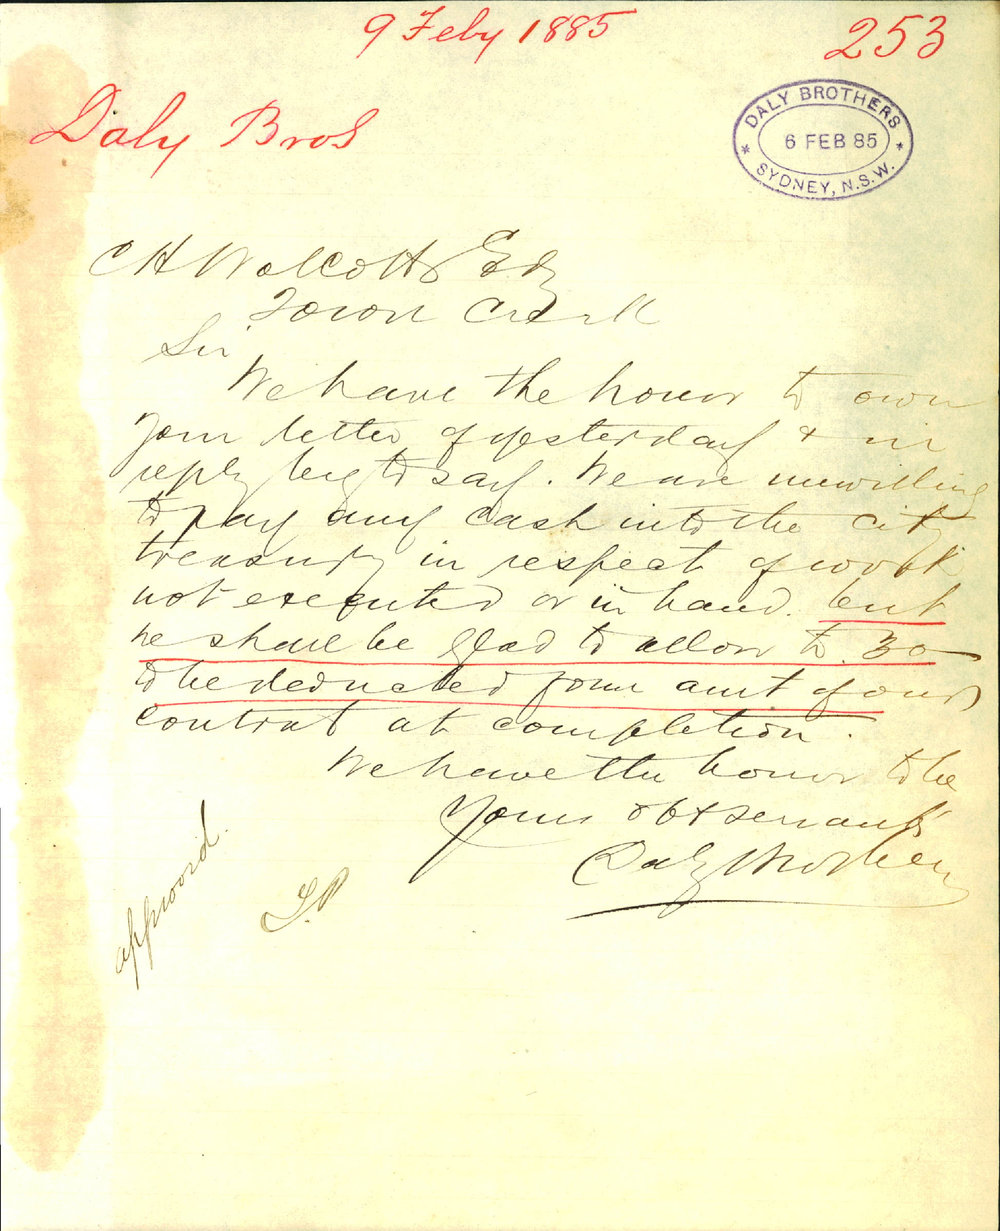 9 Feby 1885
253
Daly Bros
DALY BROTHERS
6 FEB 85
* SYDNEY, N.S.W. *
C H Wolcott Esq
Town Clerk
Sir
We have the honor to own
your letter of yesterday & in
reply beg to say. We are unwilling
to pay any cash into the city
treasury in respect of work
not executed or in hand. but
we shall be glad to allow 30
to be deducted from amt of our
contrat at completion.
We have the honor to be
Yours obt servants
Daly Brothers
approvd.